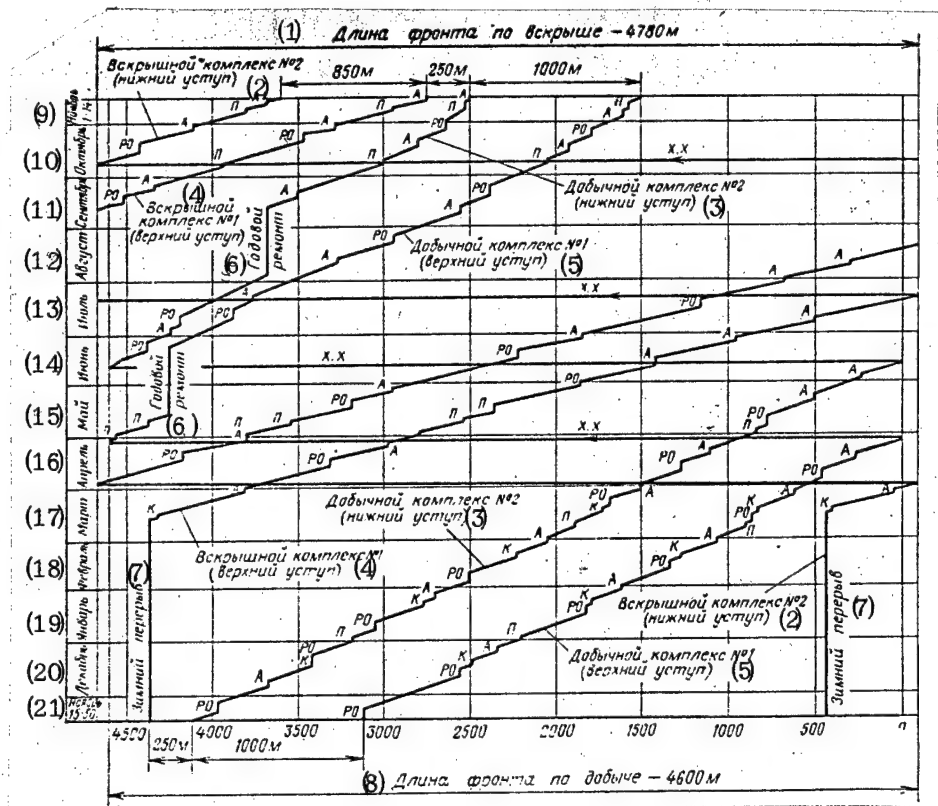 (1) Длина фронта по вскрыше – 4780м
Вскрышной комплекс №2
(нижний уступ) (2)
850м
250м
1000м
(9)
Ноябрь
1-14
(10) Октябрь
(11) Сентябрь
(12) Август
(13) Июль
(14) Июнь
(15) Май
(16) Апрель
(17) Март
(18) Февраль
(19) Январь
(20) Декабрь
(21) Ноябрь
15-30
РО А П А
РО П РО А П А
П А РО П А
П А РО А П
х.х
(4)
Вскрышной
комплекс №1
(верхний уступ)
(6)
Годовой
ремонт
Добычной комплекс №2
(нижний уступ) (3)
Добычной комплекс №1
(верхний уступ) (5)
х.х
х.х
Годовой
ремонт
(6)
х.х
Добычной комплекс №2
(нижний уступ) (3)
Вскрышной комплекс №1
(верхний уступ) (4)
Зимний перерыв (7)
Вскрышной комплекс №2
(нижний уступ) (2)
Добычной комплекс №1
(верхний уступ) (5)
Зимний перерыв (7)
4500 4000 3500 3000 2500 2000 1500 1000 500 0
250м 1000м
(8) Длина фронта по добыче – 4600м